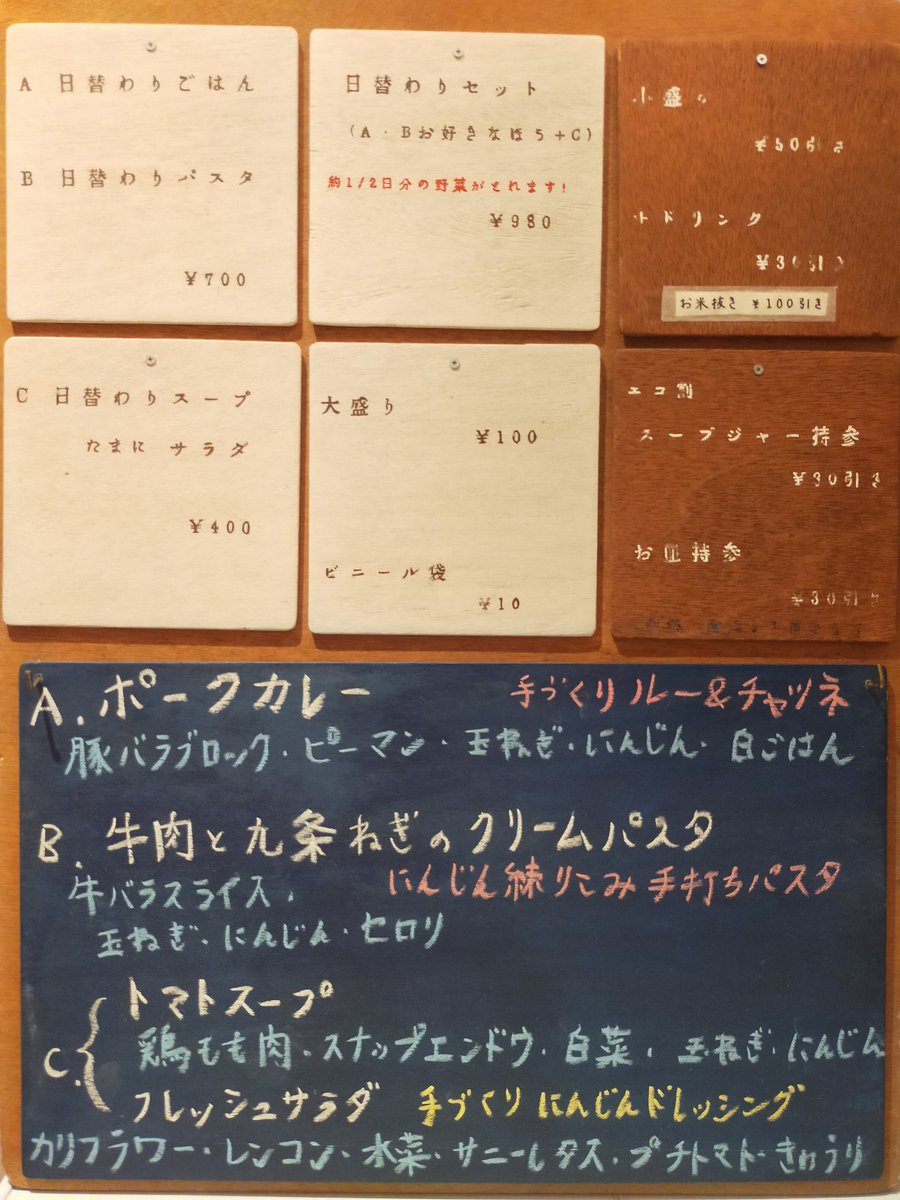 A 日替わりごはん
B 日替わりパスタ
¥700
日替わりセット
(A・Bお好きなほう+C)
約1/2日分の野菜がとれます!
¥980
小盛り
¥50引き
ドリンク
¥30引き
お米抜き ¥100引き
C 日替わりスープ
たまに サラダ
¥400
大盛り
¥100
ビニール袋
¥10
エコ割
スープジャー持参
¥30引き
お皿持参
¥30引き
A. ポークカレー 手づくりルー&チャツネ
豚バラブロック・ピーマン・玉ねぎ・にんじん・白ごはん
B. 牛肉と九条ねぎのクリームパスタ
にんじん練りこみ手打ちパスタ
牛バラスライス・
玉ねぎ・にんじん・セロリ
C. トマトスープ
鶏もも肉・スナップエンドウ・白菜・玉ねぎ・にんじん
フレッシュサラダ 手づくりにんじんドレッシング
カリフラワー・レンコン・水菜・サニーレタス・プチトマト・きゅうり